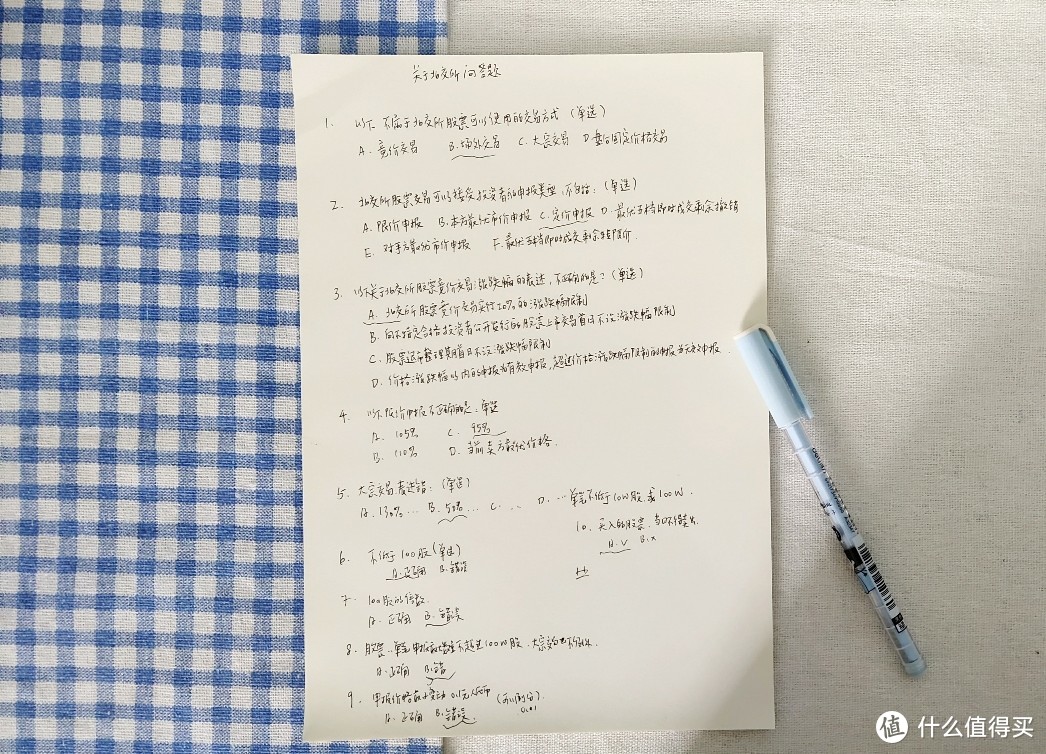 关于北交所问答题
1. 以下不属于北交所股票可以使用的交易方式（单选）
A. 竞价交易 B. 场外交易 C. 大宗交易 D. 盘后固定价格交易
2. 北交所股票交易可以接受投资者的申报类型，不包括：（单选）
A. 限价申报 B. 本方最优市价申报 C. 定价申报 D. 最优五档即时成交剩余撤销
E. 对手方最优市价申报 F. 最优五档即时成交剩余转限价.
3. 以下关于北交所股票竞价交易涨跌幅的表述，不正确的是？（单选）
A. 北交所股票竞价交易实行20%的涨跌幅限制
B. 向不特定合格投资者公开发行的股票上市交易首日不设涨跌幅限制
C. 股票退市整理期首日不设涨跌幅限制
D. 价格涨跌幅以内的申报为有效申报，超过价格涨跌幅限制的申报为无效申报.
4. 以下限价申报不正确的是：单选
A. 105% C. 95%
B. 110% D. 当前卖方最优价格.
5. 大宗交易表述错：（单选）
A. 130%... B. 50%... C... D. ...单笔不低于10W股或100W.
6. 不低于100股（单选）
A. 正确 B. 错误
7. 100股的倍数.
A. 正确 B. 错误
8. 股票..单笔申报数量不超过100W股.大宗交易
A. 正确 B. 错
9. 申报价格最小变动0.1元人民币
0.01
A. 正确 B. 错误
10. 买入的股票，当日不得卖出.
A. √ B. ×
值 什么值得买